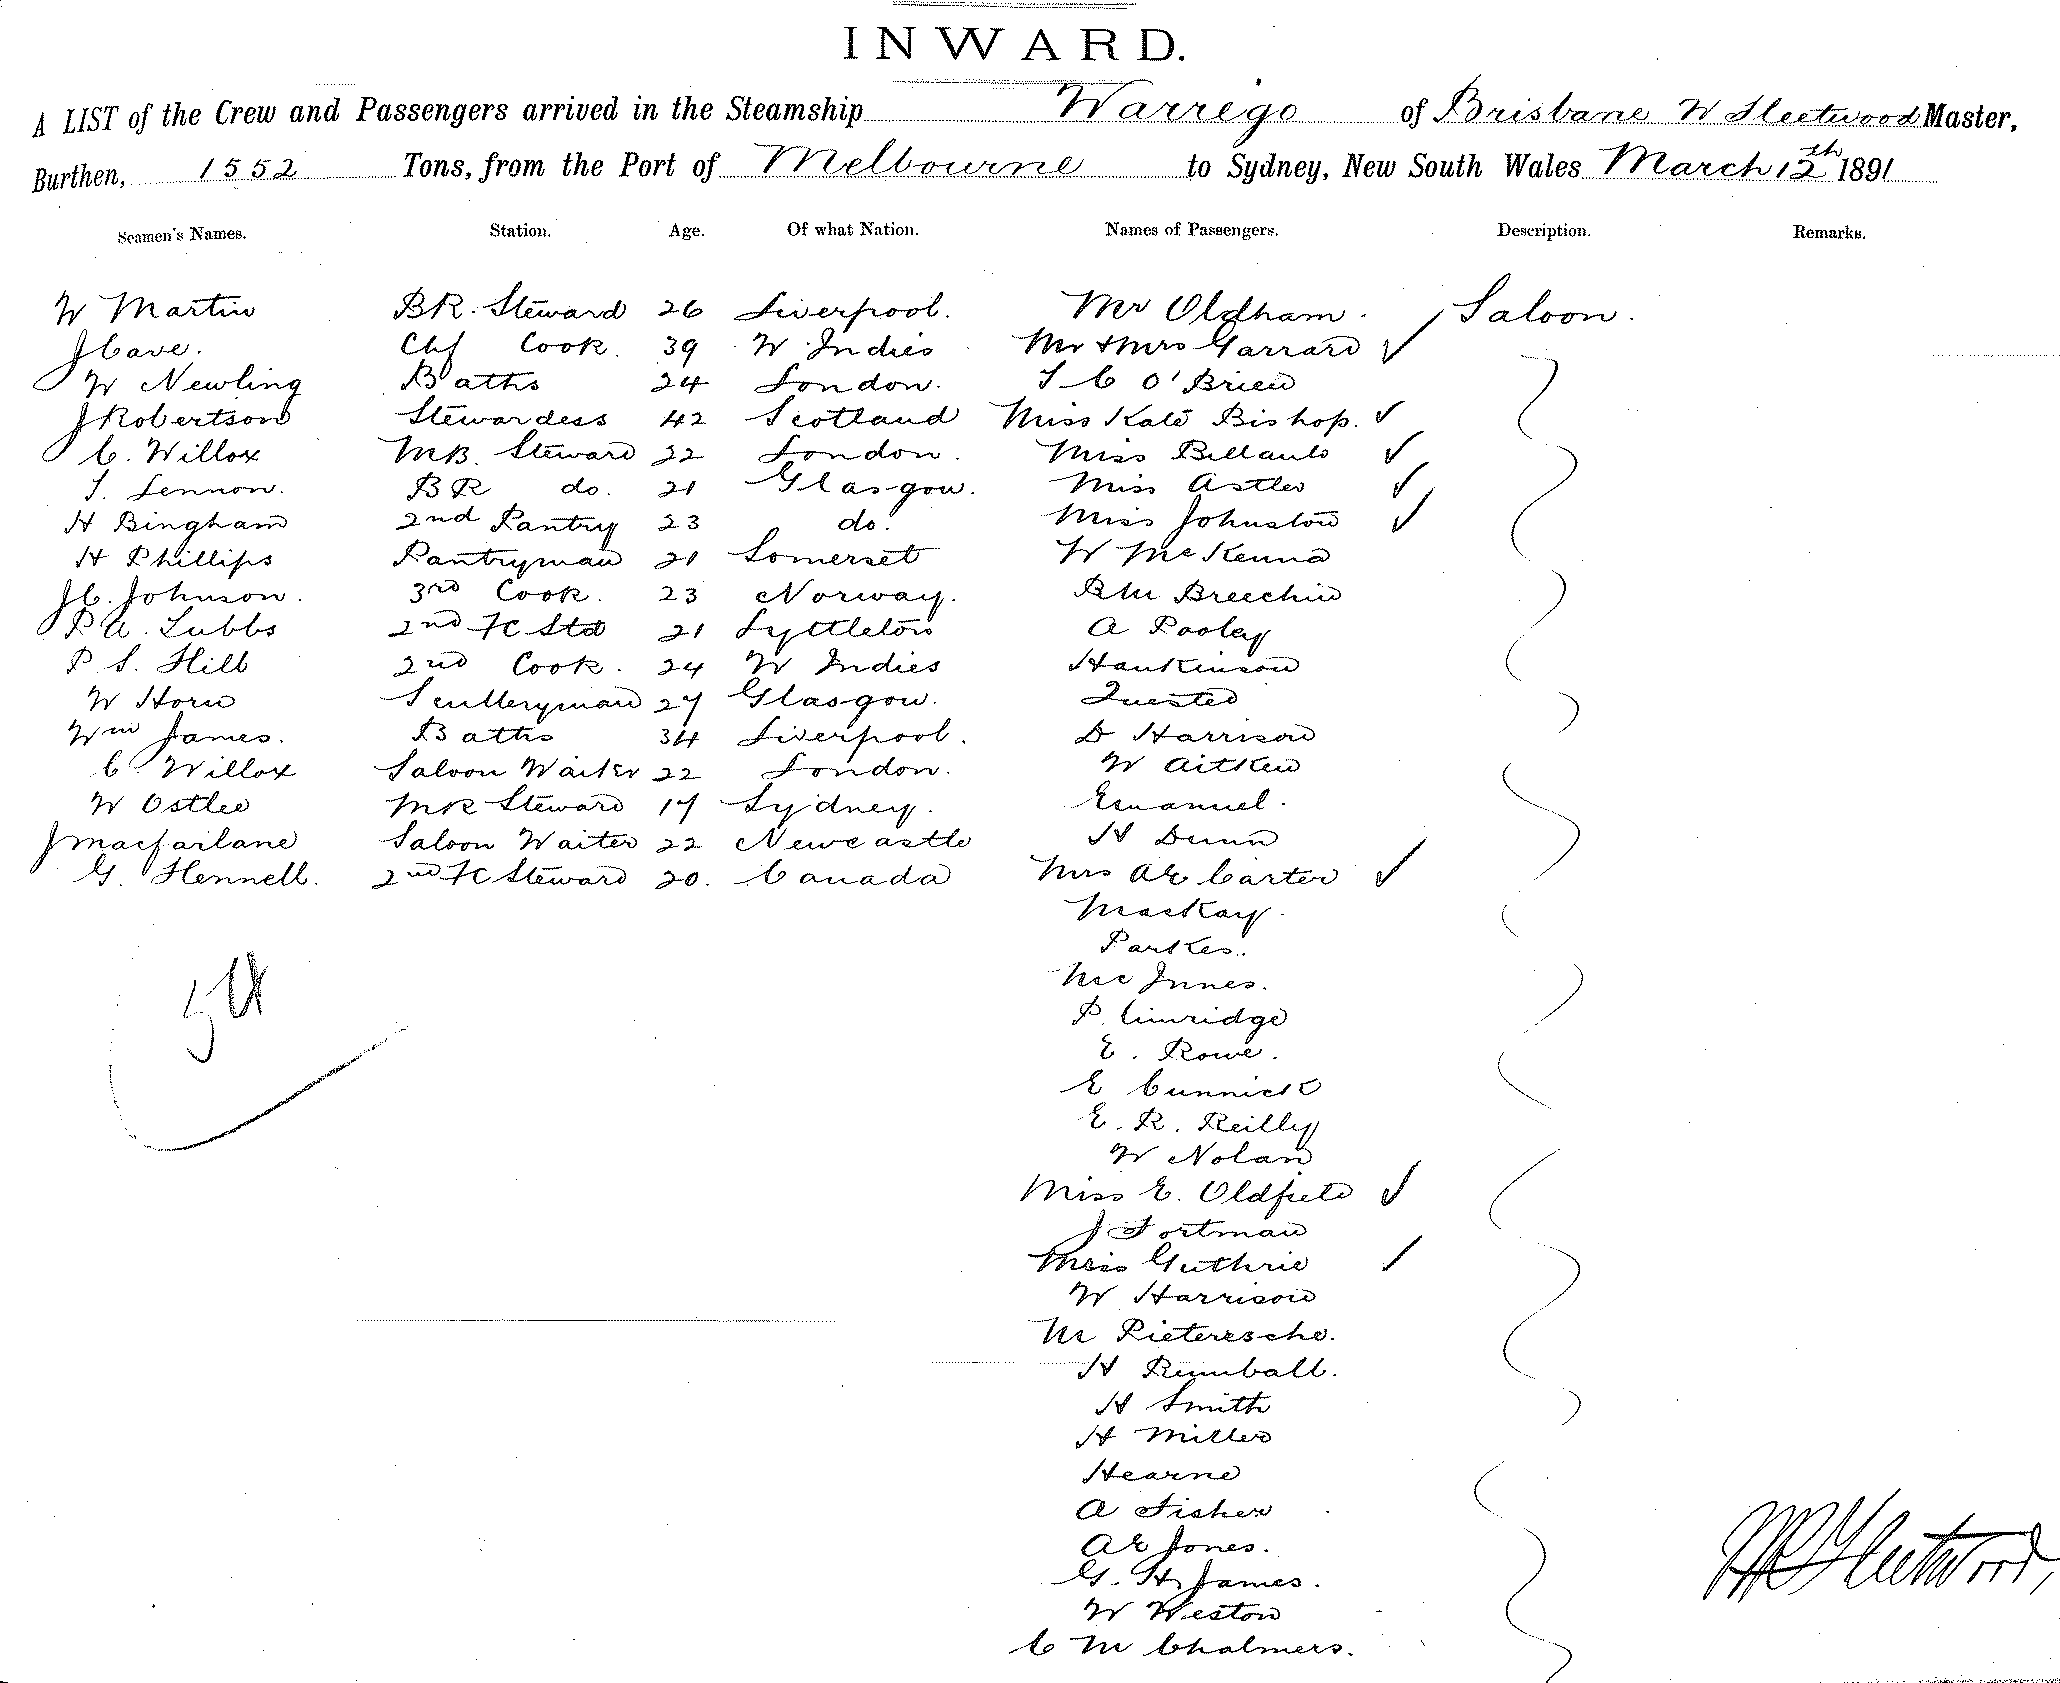 INWARD.
A LIST of the Crew and Passengers arrived in the Steamship Warrego of Brisbane W Fleetwood Master,
Burthen, 1552 Tons, from the Port of Melbourne to Sydney, New South Wales March 12th 1891
Seamen's Names. Station. Age. Of what Nation. Names of Passengers. Description. Remarks.
W Martin BR. Steward 26 Liverpool. Mr Oldham. Saloon.
J Cave. Chf Cook. 39 W Indies Mr & Mrs Garrard
W Newling Baths 24 London. T C O'Brien
J Robertson Stewardess 42 Scotland Miss Kate Bishop.
C. Willox MB. Steward 22 London. Miss
T. Lennon. BR do. 21 Glasgow. Miss Astley
H Bingham 2nd Pantry 23 do. Miss Johnston
H Phillips Pantryman 21 Somerset W McKenna
J C. Johnson. 3rd Cook. 23 Norway. R M Breechin
P A. Lubbs 2nd FC Std 21 Lyttleton A Pooley
P S. Hill 2nd Cook. 24 W Indies Hankinson
W Horn Sculleryman 27 Glasgow. Quested
Wm James. Baths 34 Liverpool. D Harrison
C. Willox Saloon Waiter 22 London. W Aitken
W Ostler MR Steward 17 Sydney. Emanuel.
J Macfarlane Saloon Waiter 22 Newcastle H Dunn
G. Hennell. 2nd FC Steward 20. Canada Mrs AE Carter
Mackay.
Parkes.
McInnes.
P.
E. Rowe.
E Cunnick
E. R. Reilly
W Nolan
Miss E. Oldfield
J Fortman
Miss Guthrie
W Harrison
M Pieteresche.
H Rumball.
H Smith
H Miller
Hearne
A Fisher
AE Jones.
G. H. James.
W Weston
C M Chalmers.
54
W Fleetwood,